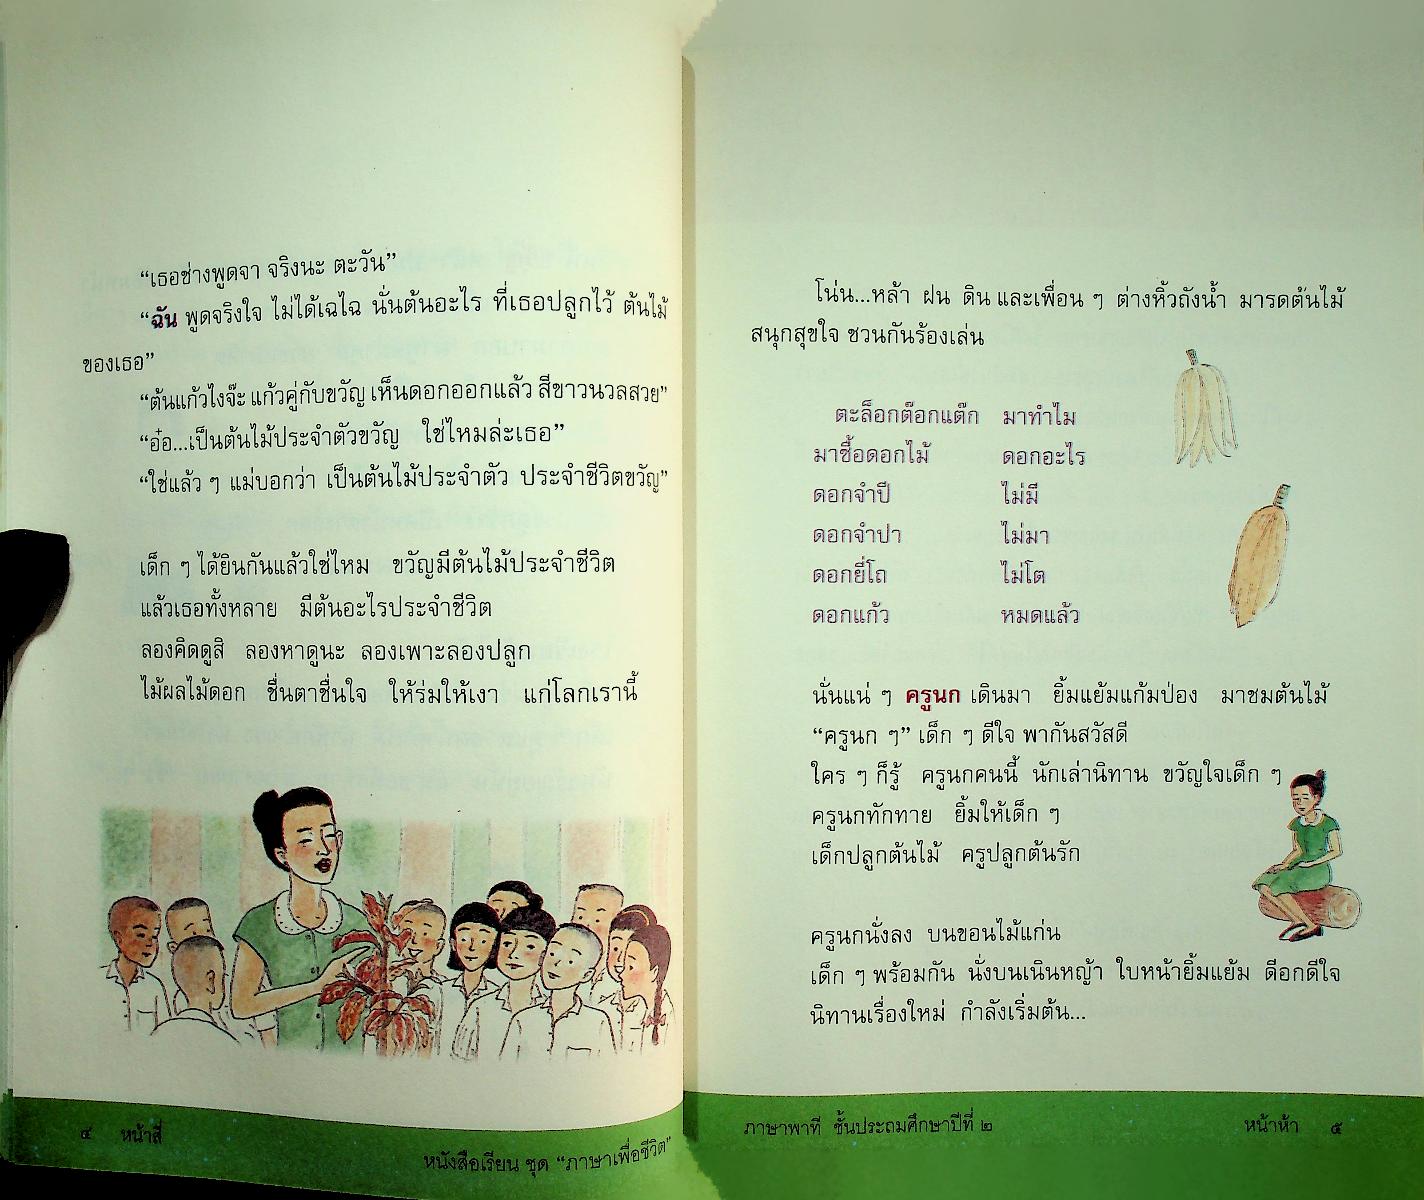 “เธอช่างพูดจา จริงนะ ตะวัน”
“ฉัน พูดจริงใจ ไม่ได้เฉไฉ นั่นต้นอะไร ที่เธอปลูกไว้ ต้นไม้
ของเธอ”
“ต้นแก้วไงจ๊ะ แก้วคู่กับขวัญ เห็นดอกออกแล้ว สีขาวนวลสวย”
“อ๋อ...เป็นต้นไม้ประจำตัวขวัญ ใช่ไหมล่ะเธอ”
“ใช่แล้ว ๆ แม่บอกว่า เป็นต้นไม้ประจำตัว ประจำชีวิตขวัญ”
เด็ก ๆ ได้ยินกันแล้วใช่ไหม ขวัญมีต้นไม้ประจำชีวิต
แล้วเธอทั้งหลาย มีต้นอะไรประจำชีวิต
ลองคิดดูสิ ลองหาดูนะ ลองเพาะลองปลูก
ไม้ผลไม้ดอก ชื่นตาชื่นใจ ให้ร่มให้เงา แก่โลกเรานี้
๔ หน้าสี่
หนังสือเรียน ชุด “ภาษาเพื่อชีวิต”
โน่น...หล้า ฝน ดิน และเพื่อน ๆ ต่างหิ้วถังน้ำ มารดต้นไม้
สนุกสุขใจ ชวนกันร้องเล่น
ตะล็อกต๊อกแต๊ก มาทำไม
มาซื้อดอกไม้ ดอกอะไร
ดอกจำปี ไม่มี
ดอกจำปา ไม่มา
ดอกยี่โถ ไม่โต
ดอกแก้ว หมดแล้ว
นั่นแน่ ๆ ครูนก เดินมา ยิ้มแย้มแก้มป่อง มาชมต้นไม้
“ครูนก ๆ” เด็ก ๆ ดีใจ พากันสวัสดี
ใคร ๆ ก็รู้ ครูนกคนนี้ นักเล่านิทาน ขวัญใจเด็ก ๆ
ครูนกทักทาย ยิ้มให้เด็ก ๆ
เด็กปลูกต้นไม้ ครูปลูกต้นรัก
ครูนกนั่งลง บนขอนไม้แก่น
เด็ก ๆ พร้อมกัน นั่งบนเนินหญ้า ใบหน้ายิ้มแย้ม ดีอกดีใจ
นิทานเรื่องใหม่ กำลังเริ่มต้น...
ภาษาพาที ชั้นประถมศึกษาปีที่ ๒ หน้าห้า ๕